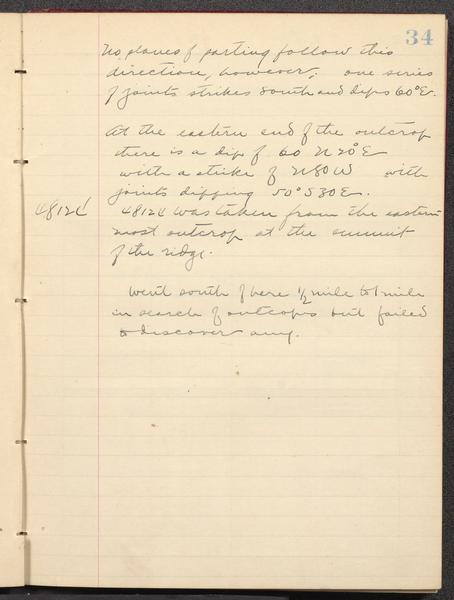 34
No planes of parting follow this
direction, however; one series
of joints strikes South and dips 60° E.
At the eastern end of the outcrop
there is a dip of 60 N 20° E
with a strike of N 80 W with
joints dipping 50° S 80 E.
48124 48124 was taken from the eastern
most outcrop at the summit
of the ridge.
Went south of here 1/2 mile to 1 mile
in search of outcrops but failed
to discover any.